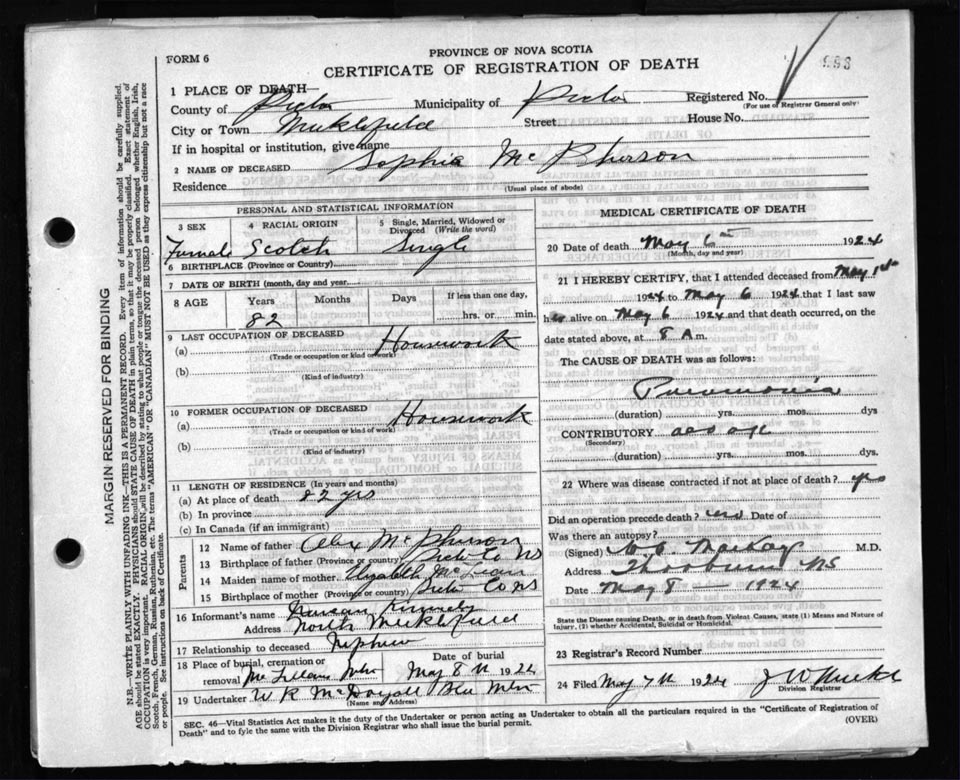 FORM 6
PROVINCE OF NOVA SCOTIA
CERTIFICATE OF REGISTRATION OF DEATH
993
1 PLACE OF DEATH—
County of Pictou Municipality of Pictou Registered No.
(For use of Registrar General only)
City or Town Meiklefield Street House No.
If in hospital or institution, give name
2 NAME OF DECEASED Sophia McPherson
Residence
(Usual place of abode)
PERSONAL AND STATISTICAL INFORMATION
3 SEX 4 RACIAL ORIGIN 5 Single, Married, Widowed or Divorced (Write the word)
Female Scotch Single
6 BIRTHPLACE (Province or Country)
7 DATE OF BIRTH (month, day and year)
8 AGE Years Months Days If less than one day,
82 hrs. or min.
9 LAST OCCUPATION OF DECEASED
(a) Housework
(Trade or occupation or kind of work)
(b)
(Kind of industry)
10 FORMER OCCUPATION OF DECEASED
(a) Housework
(Trade or occupation or kind of work)
(b)
(Kind of industry)
11 LENGTH OF RESIDENCE (In years and months)
(a) At place of death 82 yrs
(b) In province
(c) In Canada (if an immigrant)
Parents
12 Name of father Alex McPherson
13 Birthplace of father (Province or country) Pictou Co NS
14 Maiden name of mother Elizabeth McLean
15 Birthplace of mother (Province or country) Pictou Co NS
16 Informant's name
Address North Meiklefield
17 Relationship to deceased Nephew
18 Place of burial, cremation or removal Date of burial
May 8th 1924
19 Undertaker W R McDougall Blue Mtn
(Name and Address)
MEDICAL CERTIFICATE OF DEATH
20 Date of death May 6th 1924
(Month, day and year)
21 I HEREBY CERTIFY, that I attended deceased from May 1st
1924 to May 6 1924 that I last saw
her alive on May 6 1924 and that death occurred, on the
date stated above, at 8 A m.
The CAUSE OF DEATH was as follows:
Pneumonia
(duration) yrs. mos. dys
CONTRIBUTORY old age
(Secondary)
(duration) yrs. mos. dys.
22 Where was disease contracted if not at place of death? yes
Did an operation precede death? no Date of
Was there an autopsy?
(Signed) MacKay M.D.
Address Thorburn NS
Date May 8 — 1924
State the Disease causing Death, or in death from Violent Causes, state (1) Means and Nature of Injury, (2) whether Accidental, Suicidal or Homicidal.
23 Registrar's Record Number
24 Filed May 7th 1924
Division Registrar
SEC. 46—Vital Statistics Act makes it the duty of the Undertaker or person acting as Undertaker to obtain all the particulars required in the "Certificate of Registration of
Death" and to fyle the same with the Division Registrar who shall issue the burial permit.
(OVER)
MARGIN RESERVED FOR BINDING
N.B.—WRITE PLAINLY WITH UNFADING INK—THIS IS A PERMANENT RECORD. Every item of information should be carefully supplied.
AGE should be stated EXACTLY. PHYSICIANS should STATE CAUSE OF DEATH in plain terms, so that it may be properly classified. Exact statement of
OCCUPATION is very important. RACIAL ORIGIN, will be described by stating to what people or tongue the deceased person belonged whether English, Irish,
Scotch, French, German, Russian, Ruthenian, etc. The terms "AMERICAN" OR "CANADIAN" MUST NOT BE USED as they express citizenship but not a race
or people. See instructions on back of Certificate.